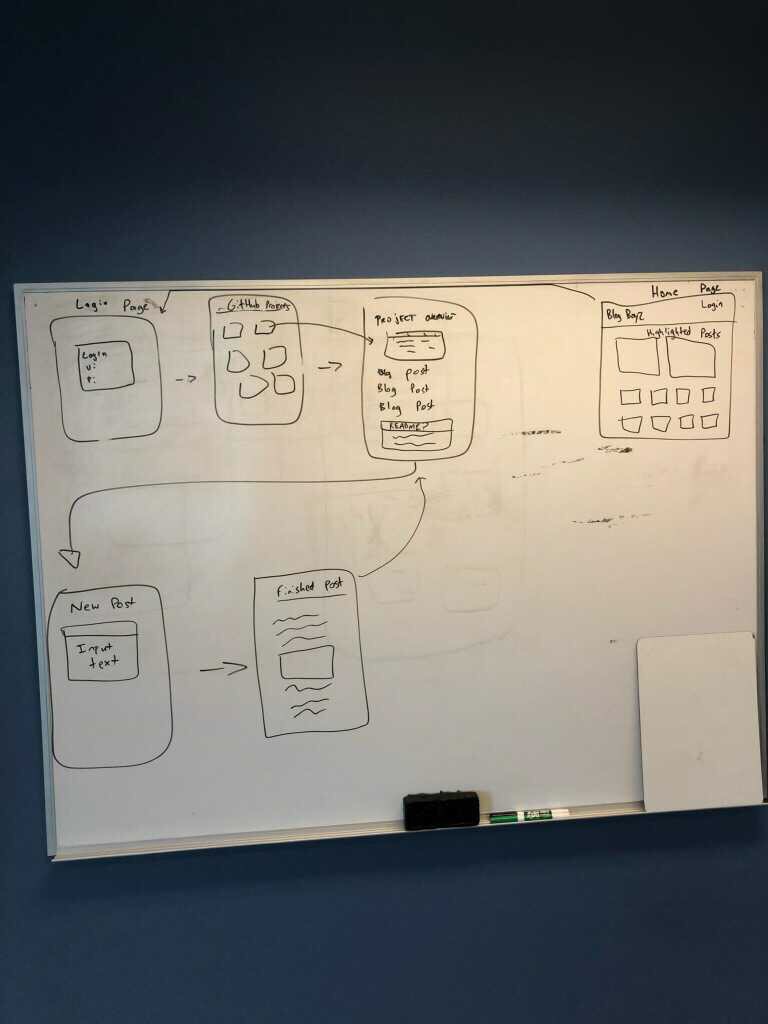 Login Page
Login
U:
P:
GitHub Projects
PROJECT OVERVIEW
Blog post
Blog Post
Blog Post
README?
Home Page
Blog Boyz
Login
Highlighted Posts
New Post
Input
text
Finished Post